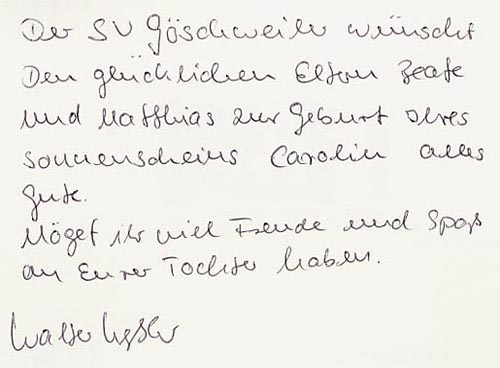 Der SV Göschweiler wünscht
Den glücklichen Eltern Beate
und Matthias zur Geburt ihres
Sonnenscheins Carolin alles
Gute.
Möget ihr viel Freude und Spaß
an Eurer Tochter haben.
Walter